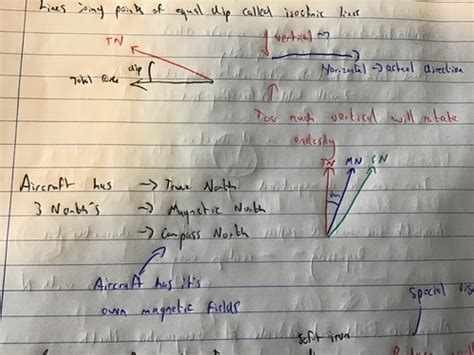 Lines joing points of equal dip called isoclinic lines
TN
dip
Total Force
vertical
Horizontal → actual direction
Too much vertical will rotate
endlessly
TN MN CN
Aircraft has → True North
3 North's → Magnetic North
→ Compass North
Aircraft has it's
own magnetic fields
Special
Soft iron